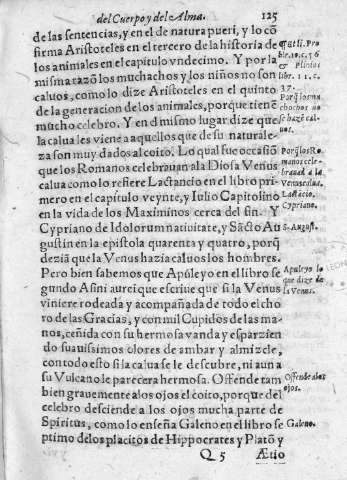 del Cuerpo y del Alma. 125
de las sentencias, y en el de natura pueri, y lo cõ
firma Aristoteles en el tercero de la historia de
los animales en el capitulo vndecimo. Y por la
misma razõ los muchachos y los niños no son
caluos, como lo dize Aristoteles en el quinto
de la generacion de los animales, porque tienẽ
mucho celebro. Y en el mismo lugar dize que
la calua les viene a aquellos que de su naturale-
za son muy dados al coito. Lo qual fue occasiõ
que los Romanos celebrauan a la Diosa Venus
calua como lo refiere Lactancio en el libro pri-
mero en el capitulo veynte, y Iulio Capitolino
en la vida de los Maximinos cerca del fin. Y
Cypriano de Idolorum natiuitate, y Sãcto Au
gustin en la epistola quarenta y quatro, porq̃
deziã que la Venus hazia caluos los hombres.
Pero bien sabemos que Apuleyo en el libro se
gundo Asini aurei que escriue que si la Venus
viniere rodeada y acompañada de todo el cho
ro de las Gracias, y con mil Cupidos de las ma-
nos, ceñida con su hermosa vanda y esparzien
do suauissimos olores de ambar y almizcle,
con todo esto si la calua se le descubre, ni aun a
su Vulcano le parecera hermosa. Offende tam
bien grauemente a los ojos el coito, porque del
celebro desciende a los ojos mucha parte de
Spiritus, como lo enseña Galeno en el libro se
ptimo de los placitos de Hippocrates y Platõ y
Q 5 Ætio
lib. 11. c.
37.
Porq̃ los mu
chochos no
se hazẽ cal-
uos.
Porq̃ los Ro
manos cele-
brauã a la
Venus calua.
Lactãcio,
Cypriano.
S. August.
Apuleyo lo
que dize de
la Venus.
Offende a los
ojos.
Galeno.